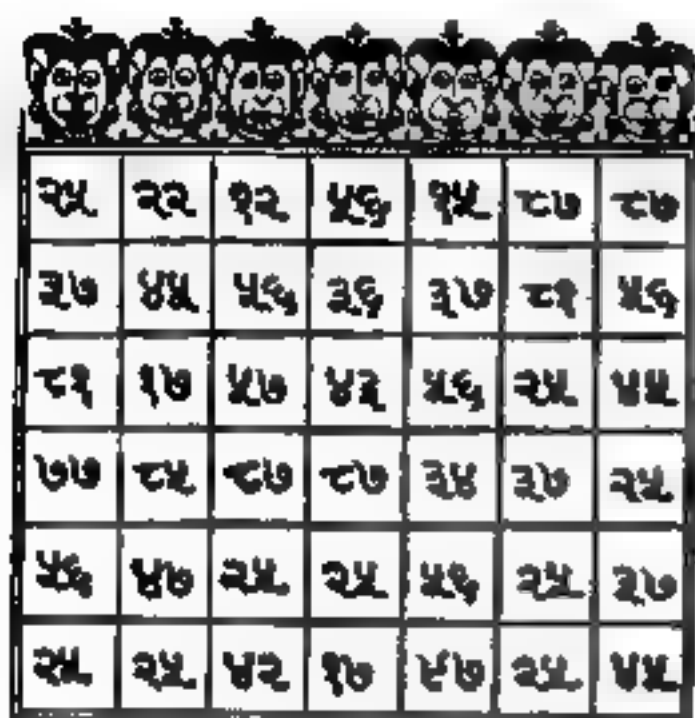 २५ २२ १२ ५६ १५ ८७ ८७
३७ ४५ ५६ ३६ ३७ ८१ ५६
८१ १७ ५७ ४३ ५६ २५ ४५
७७ ८५ ८७ ८७ ३४ ३७ २५
५६ ४७ २५ २५ ५६ २५ ३७
२५ २५ ४२ २५ ४५